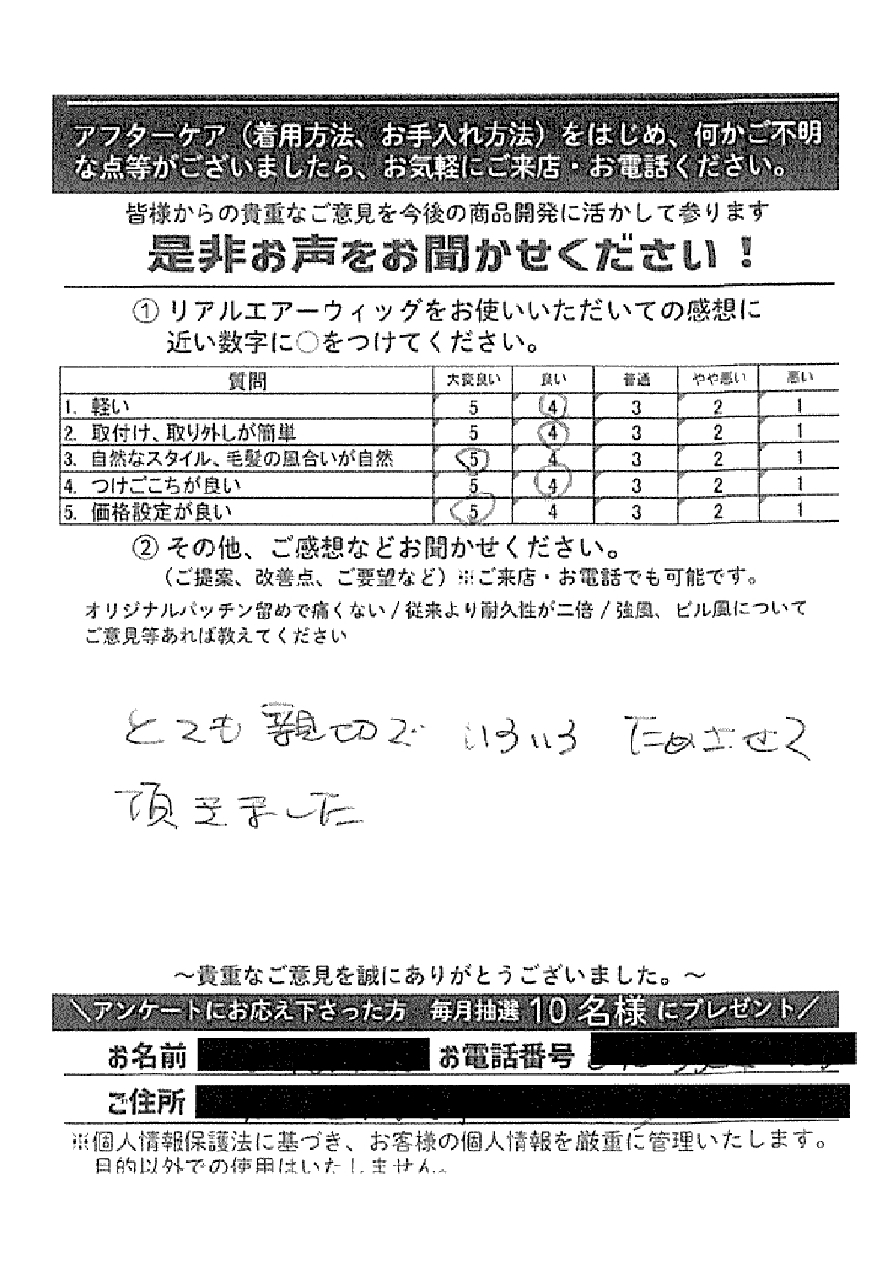 アフターケア（着用方法、お手入れ方法）をはじめ、何かご不明
な点等がございましたら、お気軽にご来店・お電話ください。
皆様からの貴重なご意見を今後の商品開発に活かして参ります
是非お声をお聞かせください！
① リアルエアーウィッグをお使いいただいての感想に
近い数字に○をつけてください。
質問 大変良い 良い 普通 やや悪い 悪い
1. 軽い 5 4 3 2 1
2. 取付け、取り外しが簡単 5 4 3 2 1
3. 自然なスタイル、毛髪の風合いが自然 5 4 3 2 1
4. つけごこちが良い 5 4 3 2 1
5. 価格設定が良い 5 4 3 2 1
② その他、ご感想などお聞かせください。
（ご提案、改善点、ご要望など）※ご来店・お電話でも可能です。
オリジナルパッチン留めで痛くない / 従来より耐久性が二倍 / 強風、ビル風について
ご意見等あれば教えてください
とても親切で いろいろ ためさせて
頂きました
～貴重なご意見を誠にありがとうございました。～
＼アンケートにお応え下さった方 毎月抽選10名様にプレゼント／
お名前 お電話番号
ご住所
※個人情報保護法に基づき、お客様の個人情報を厳重に管理いたします。
目的以外での使用はいたしません。